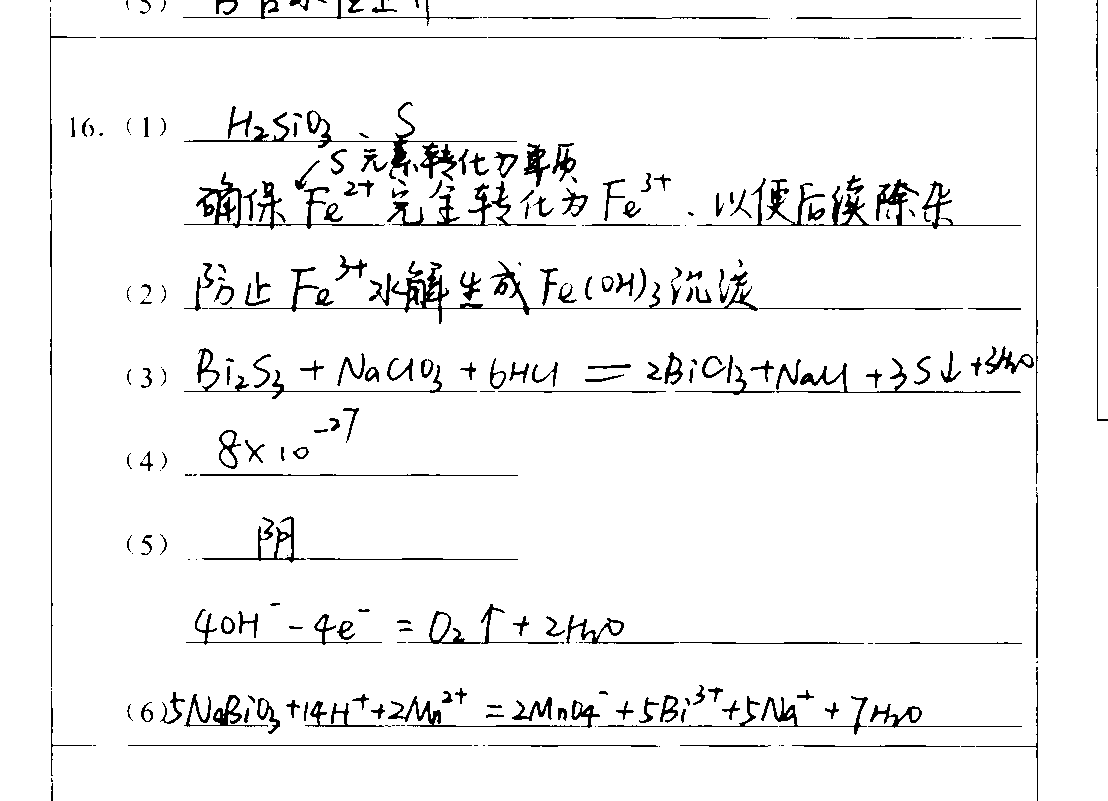 (5)
16. (1) H₂SiO₃、S
S元素转化为单质
确保Fe²⁺完全转化为Fe³⁺、以便后续除杂
(2) 防止Fe³⁺水解生成Fe(OH)₃沉淀
(3) Bi₂S₃ + NaClO₃ + 6HCl = 2BiCl₃ + NaCl + 3S↓ + 3H₂O
(4) 8×10⁻²⁷
(5) 阴
4OH⁻ - 4e⁻ = O₂↑ + 2H₂O
(6) 5NaBiO₃ + 14H⁺ + 2Mn²⁺ = 2MnO₄⁻ + 5Bi³⁺ + 5Na⁺ + 7H₂O